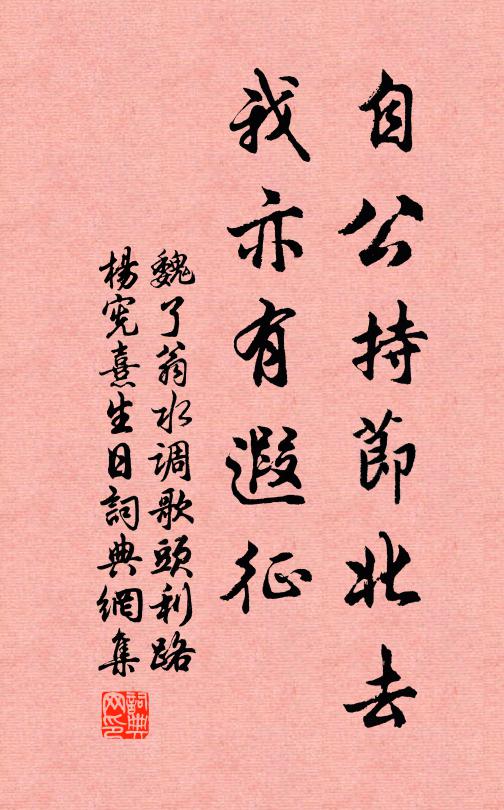 自公持節北去
我亦有遐征
魏了翁水调歌頭利路
楊宪熹生日詞典網集
詞典网印